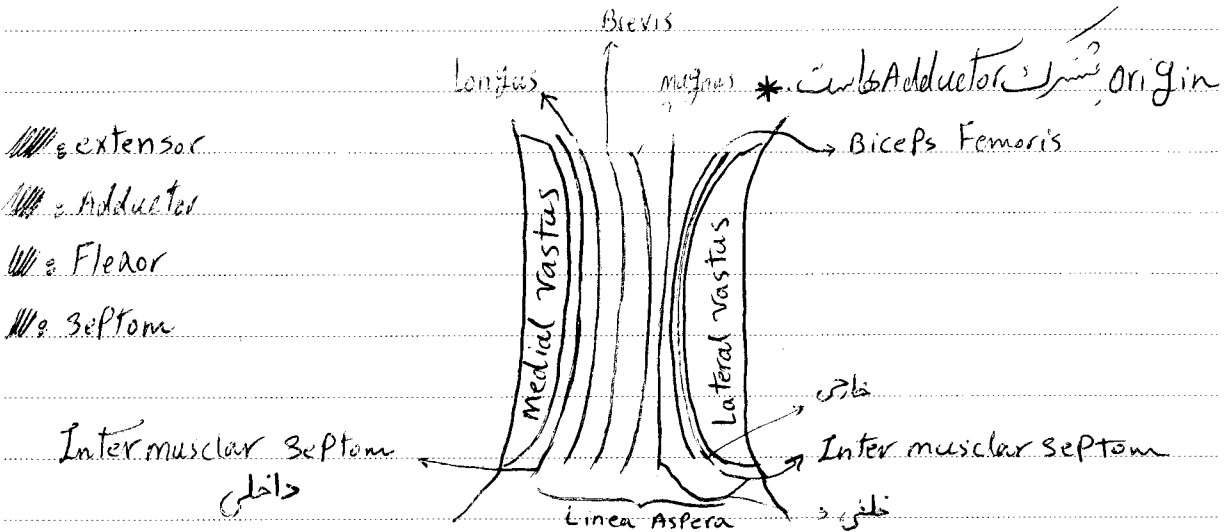 Brevis
Longus
magnus
* origin مشترک Adductor هاست.
extensor
Biceps Femoris
Adductor
Flexor
Septom
Medial vastus
Lateral vastus
خارجی
Inter musclar septom
داخلی
Inter musclar septom
خلفی
Linea Aspera